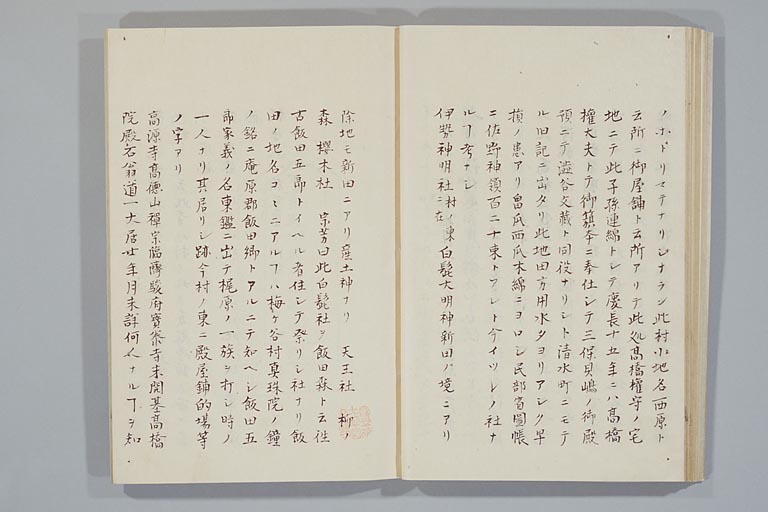 ノホドリマテナリシナラン此村小地名西原ト
云所ニ御屋舗ト云所アリテ此処高橋權守ノ宅
地ニテ此子孫連綿トシテ慶長十五年ニハ高橋
權大夫トテ御簱本ニ奉仕シテ三保貝嶋ノ御殿
預ニテ澁谷文藏ト同役ナリシト清水町ニモテ
ル旧記ニ出タリ此地田方用水タヨリアシク旱
損ノ患アリ畠瓜西瓜木綿ニヨロシ民部省圖帳
ニ佐野神領百二十束トアレト今イツレノ社ナ
ルフ考ナシ
伊勢神明社村ノ東ニ在白髭大明神新田ノ境ニアリ
除地モ新田ニアリ産土神ナリ 天王社 柳ノ
森 櫻木社 宗芳曰此白髭社ヲ飯田森ト云往
古飯田五郎トイヘル者住シテ祭リシ社ナリ飯
田ノ地名コヽニアルフハ梅ケ谷村真珠院ノ鐘
ノ銘ニ庵原郡飯田郷トアルニテ知ヘシ飯田五
郎家義ノ名東鑑ニ出テ梶原ノ一族ヲ打シ時ノ
一人ナリ其居リシ跡今村ノ東ニ殿屋鋪的場等
ノ字アリ
高源寺高德山禪宗臨濟駿府寶泰寺末開基高橋
院殿石翁道一大居士年月未詳何人ナルフヲ知